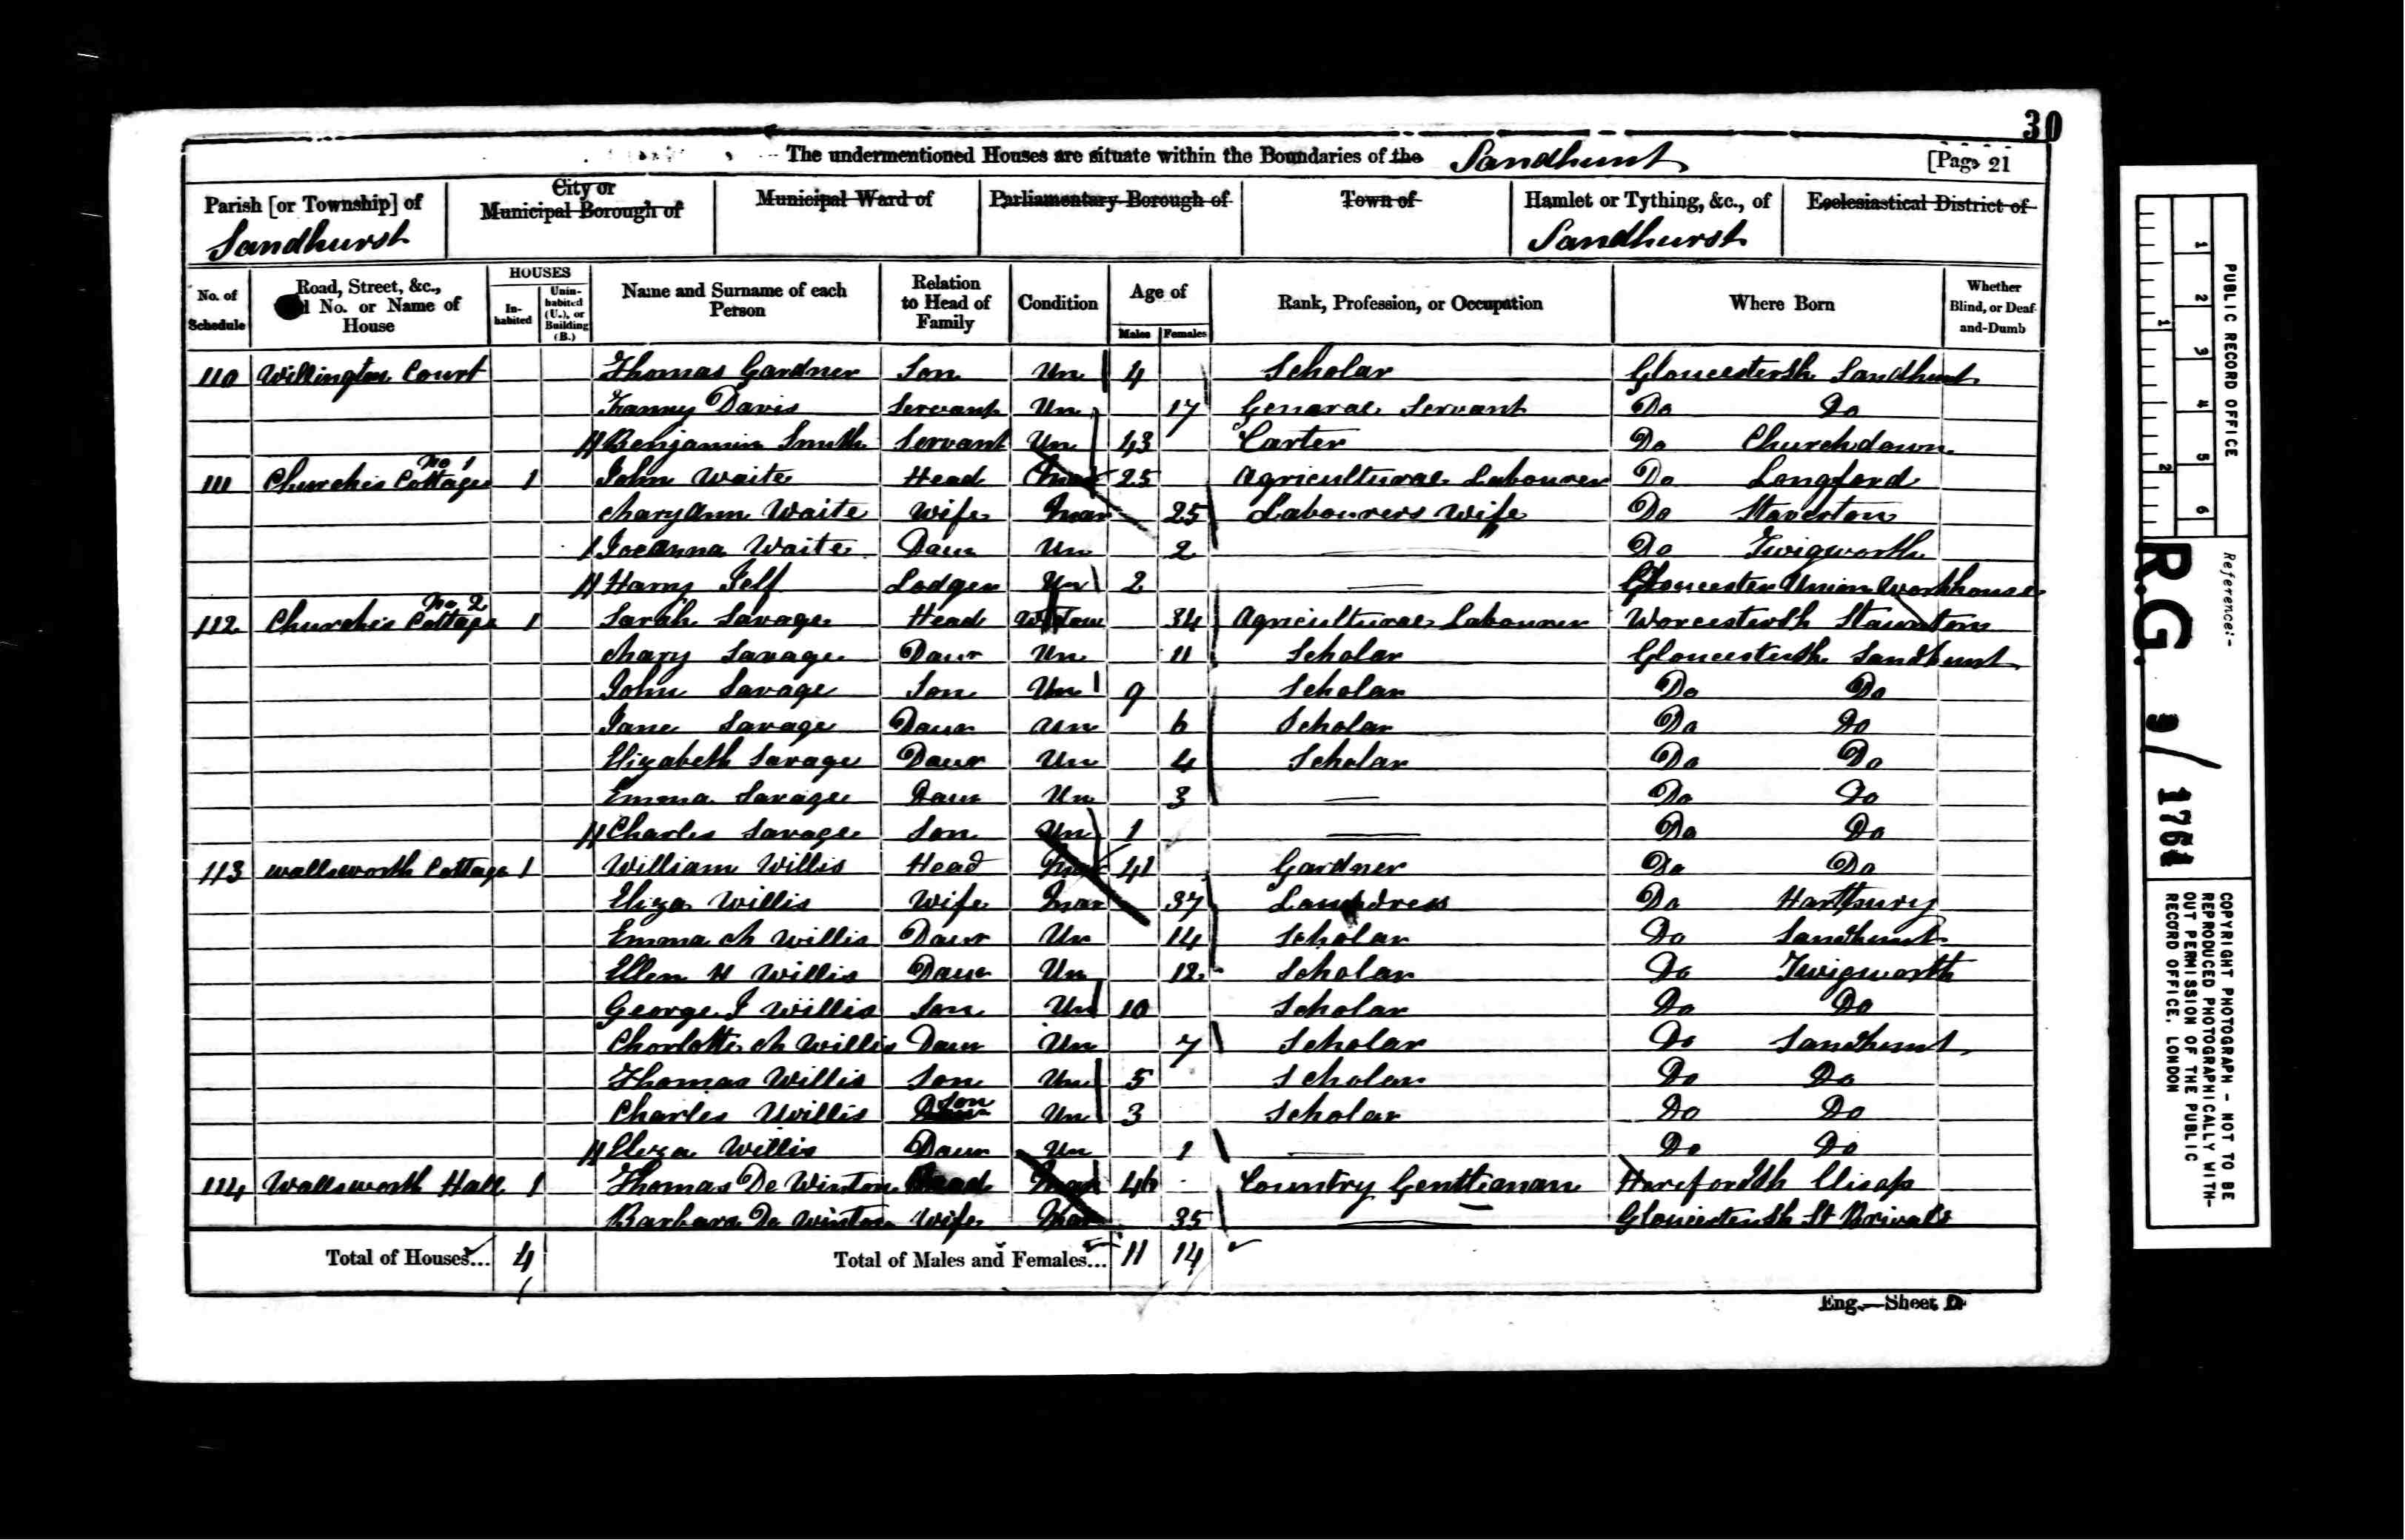 30
The undermentioned Houses are situate within the Boundaries of the Sandhurst [Page 21
Parish [or Township] of Sandhurst
City or Municipal Borough of
Municipal Ward of
Parliamentary Borough of
Town of
Hamlet or Tything, &c., of Sandhurst
Ecclesiastical District of
No. of Schedule
Road, Street, &c., No. or Name of House
HOUSES
In-habited
Unin-habited (U.), or Building (B.)
Name and Surname of each Person
Relation to Head of Family
Condition
Age of
Males Females
Rank, Profession, or Occupation
Where Born
Whether Blind, or Deaf-and-Dumb
110 Willington Court Thomas Gardner Son Un 4 Scholar Gloucestersh Sandhurst
Fanny Davis Servant Un 17 General Servant Do Do
Benjamin Smith Servant Un 43 Carter Do Churchdown
111 Churches Cottage No 1 1 John Waite Head Mar 25 Agricultural Labourer Do Longford
Mary Ann Waite Wife Mar 25 Labourers Wife Do Staverton
Joeanna Waite Daur Un 2 — Do Twigworth
Harry Jelf Lodger Un 2 — Gloucester Union Workhouse
112 Churches Cottage No 2 1 Sarah Savage Head Widow 34 Agricultural Labourer Worcestersh Staunton
Mary Savage Daur Un 11 Scholar Gloucestersh Sandhurst
John Savage Son Un 9 Scholar Do Do
Jane Savage Daur Un 6 Scholar Do Do
Elizabeth Savage Daur Un 4 Scholar Do Do
Emma Savage Daur Un 3 — Do Do
Charles Savage Son Un 1 — Do Do
113 Wallsworth Cottage 1 William Willis Head Mar 41 Gardner Do Do
Eliza Willis Wife Mar 37 Laundress Do Hartpury
Emma M Willis Daur Un 14 Scholar Do Sandhurst
Ellen H Willis Daur Un 12 Scholar Do Twigworth
George J Willis Son Un 10 Scholar Do Do
Charlotte M Willis Daur Un 7 Scholar Do Sandhurst
Thomas Willis Son Un 5 Scholar Do Do
Charles Willis Son Un 3 Scholar Do Do
Eliza Willis Daur Un 1 — Do Do
114 Wallsworth Hall 1 Thomas De Winton Head Mar 46 Country Gentleman Herefordsh
Barbara De Winton Wife Mar 35 — Gloucestersh St Brivals
Total of Houses... 4 Total of Males and Females... 11 14
Eng.—Sheet D
PUBLIC RECORD OFFICE
1 2 3 4 5 6
1 2
Reference:-
R.G. 9/1761
COPYRIGHT PHOTOGRAPH - NOT TO BE
REPRODUCED PHOTOGRAPHICALLY WITH-
OUT PERMISSION OF THE PUBLIC
RECORD OFFICE, LONDON